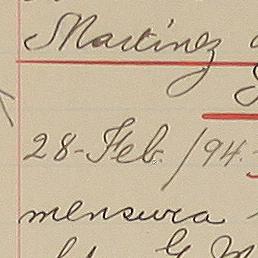 Martinez
28-Feb. /94.
mensura